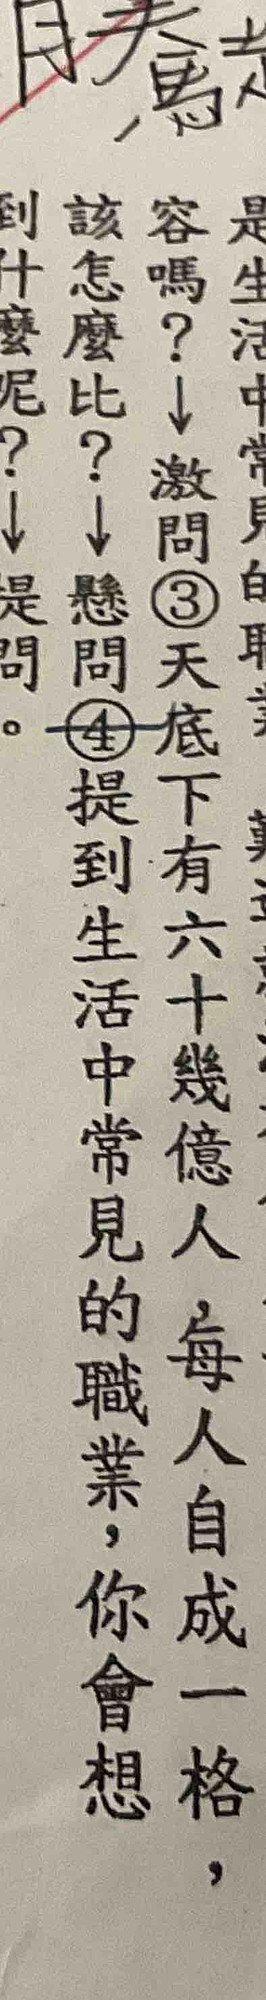 是生活中常見的職業
容嗎？→激問③天底下有六十幾億人，每人自成一格，
該怎麼比？→懸問④提到生活中常見的職業，你會想
到什麼呢？→提問。